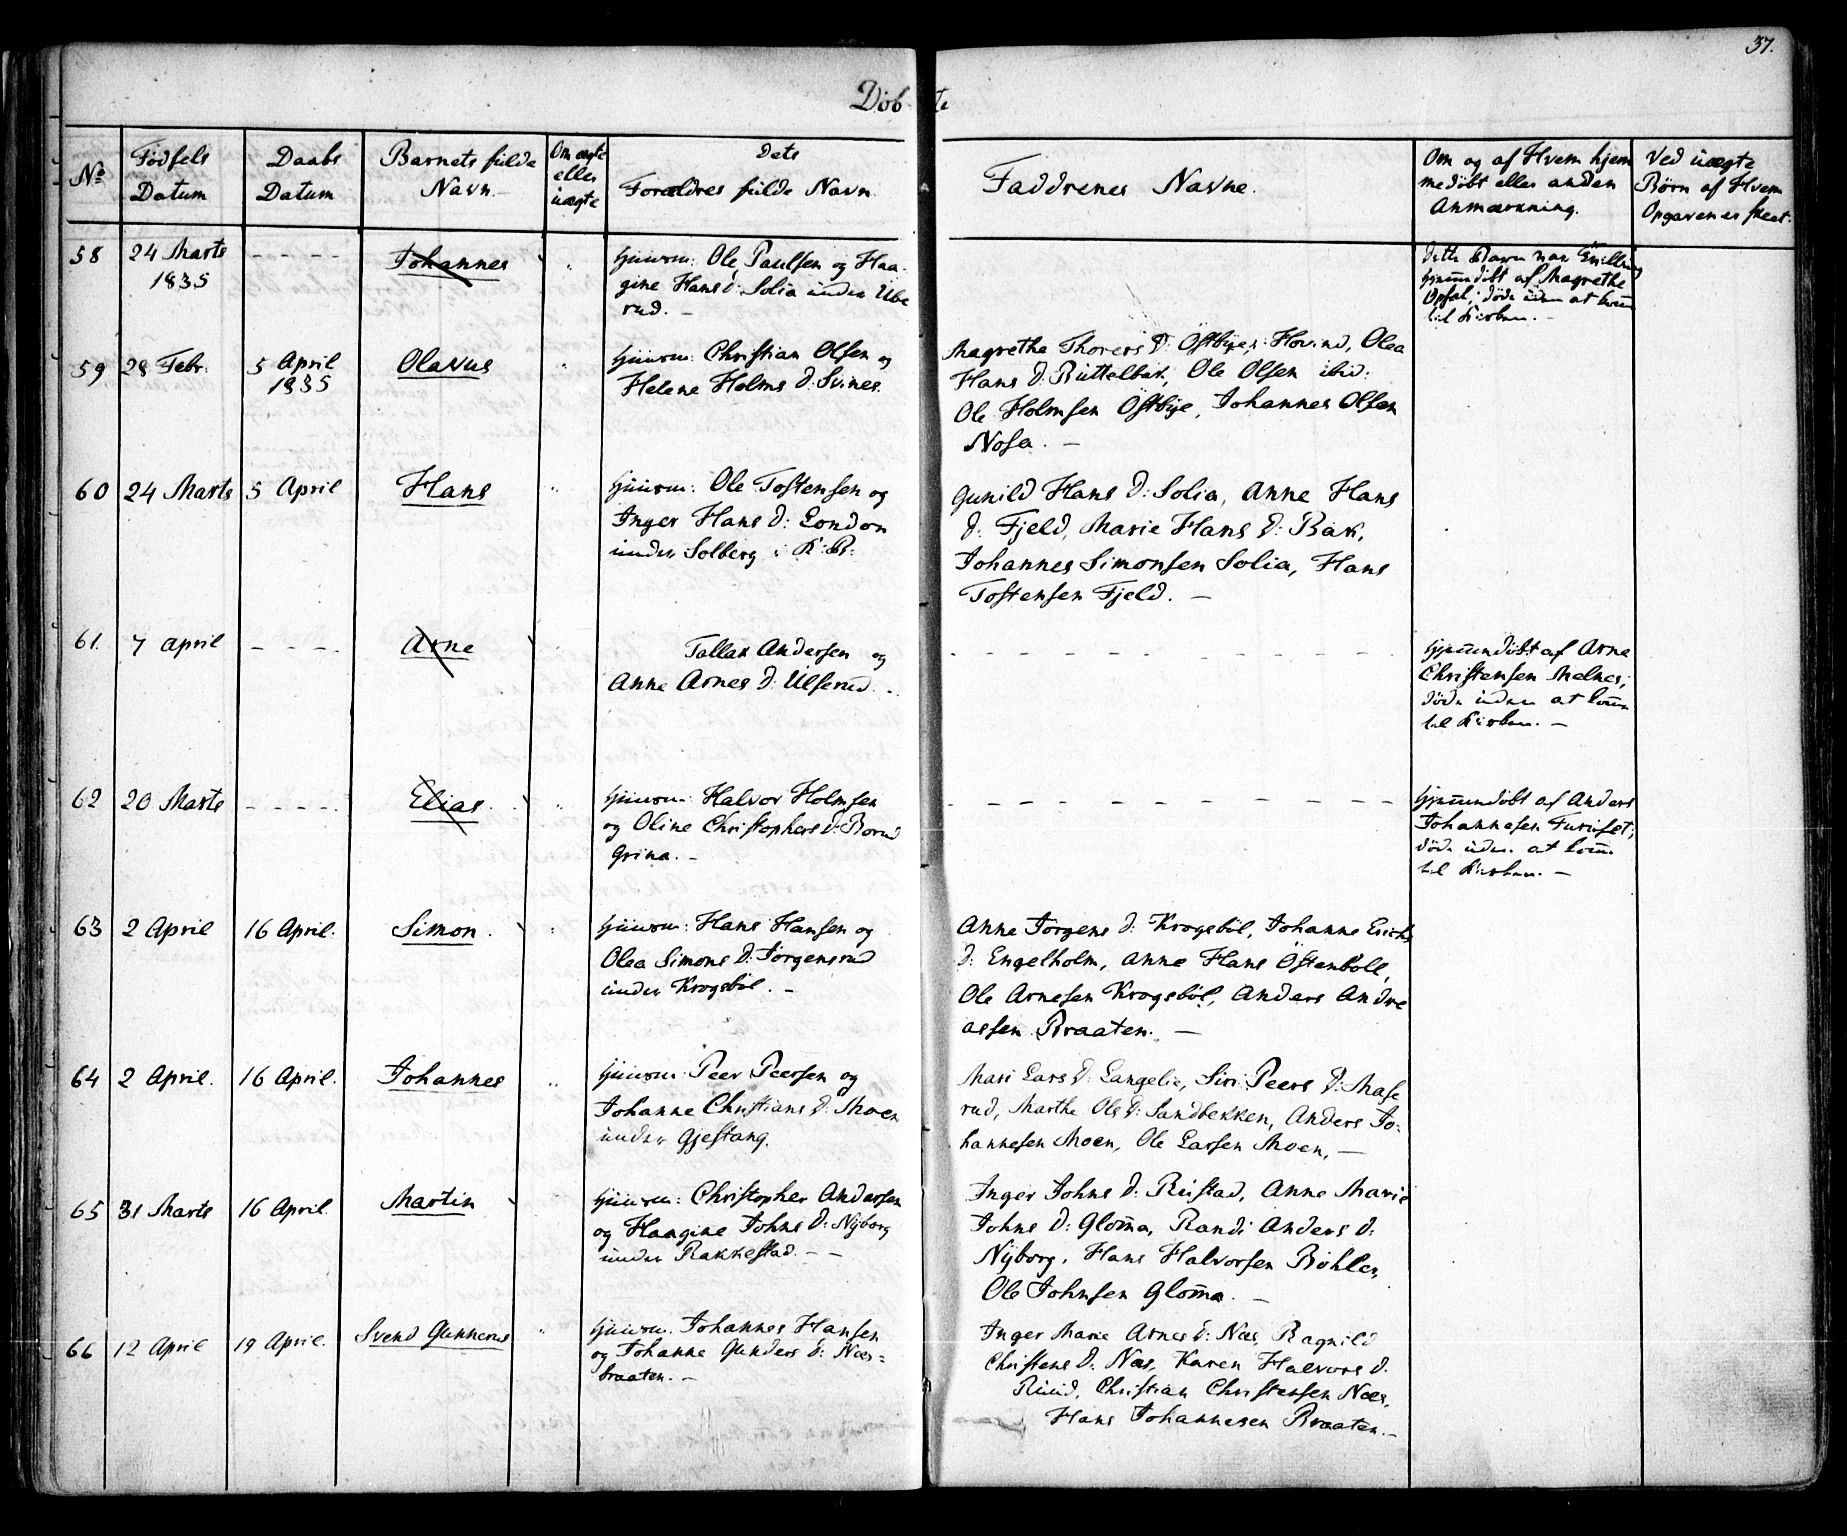 37.
Döbte
No
Födsels Datum
Daabs Datum
Barnets fulde Navn
Om ægte eller uægte
dets Forældres fulde Navn
Faddrenes Navne.
Om og af Hvem hjemmedöbt eller anden Anmærkning.
Ved uægte Börn af Hvem Opgaven er skeet.
58
24 Marts
1835
- - - -
Johannes
Huusm: Ole Paulsen og Haa-
gine Hans d: Solia under Ube
rud. -
dette Barn var Tvilling
hjemmdöbt af Magrethe
Opsal; döde uden at komme
til Kirken. -
59
28 Febr:
5 April
1835
Olavus
Huusm: Christian Olsen og
Helene Holms d: Svines.
Magrethe Thorers d: Östbye, Olea
Hans d: Büttelbak, Ole Olsen ibid:
Ole Holmsen Östbye, Johannes Olsen
Nosa. -
60
24 Marts
5 April
Hans
Huusm: Ole Tostensen og
Inger Hans d: London
under Solberg i R: R:
Gunild Hans d: Solia, Anne Hans
d: Fjeld, Marie Hans d: Bak,
Johannes Simonsen Solia, Hans
Tostensen Fjeld. -
61.
7 April
- - - -
Arne
Tallak Andersen og
Anne Arnes d: Ulserud. -
- - - - - - - - - -
hjemmdöbt af Arne
Christensen Melnes;
döde uden at komme
til Kirken. -
62
20 Marts
- - - -
Elias
Huusm: Halvor Holmsen
og Oline Christophers d: Borud
Grina. -
- - - - - - - - - - -
hjemmdöbt af Anders
Johannesen Furuset;
döde uden at komme
til Kirken. -
63
2 April
16 April.
Simon.
Huusm: Hans Hansen og
Olea Simons d: Jörgensrud
under Krogsböl. -
Anne Jörgens d: Krogsböl, Johanne Erichs
d: Engelholm, Anne Hans Östenböll,
Ole Arnesen Krogsböl, Anders Andre
assen Braaten. -
64
2 April.
16 April.
Johannes
Huusm: Peer Peersen og
Johanne Christians d: Moen
under Gjestang.
Mari Lars d: Langelie, Siri Peers d: Mase
rud, Marthe Ols d: Sandbekken, Anders Jo-
hannesen Moen, Ole Larsen Moen, -
65
31 Marts
16 April.
Martin
Huusm: Christopher Andersen
og Haagine Johns d: Nyborg
under Rakkestad. - -
Inger Johns d: Rustad, Anne Marie
Johns d: Glomma, Randi Anders d:
Nyborg, Hans Halvorsen Böhler,
Ole Johnsen Glomma. -
66
12 April
19 April.
Svend Gunnerus
Huusm. Johannes Hansen
og Johanne Gunders d: Næs=
braaten. -
Inger Marie Arnes d: Næs, Ragnild
Christens d: Næs, Karen Halvors d.
Ruud, Christian Christensen Næs,
Hans Johannesen Braaten. -